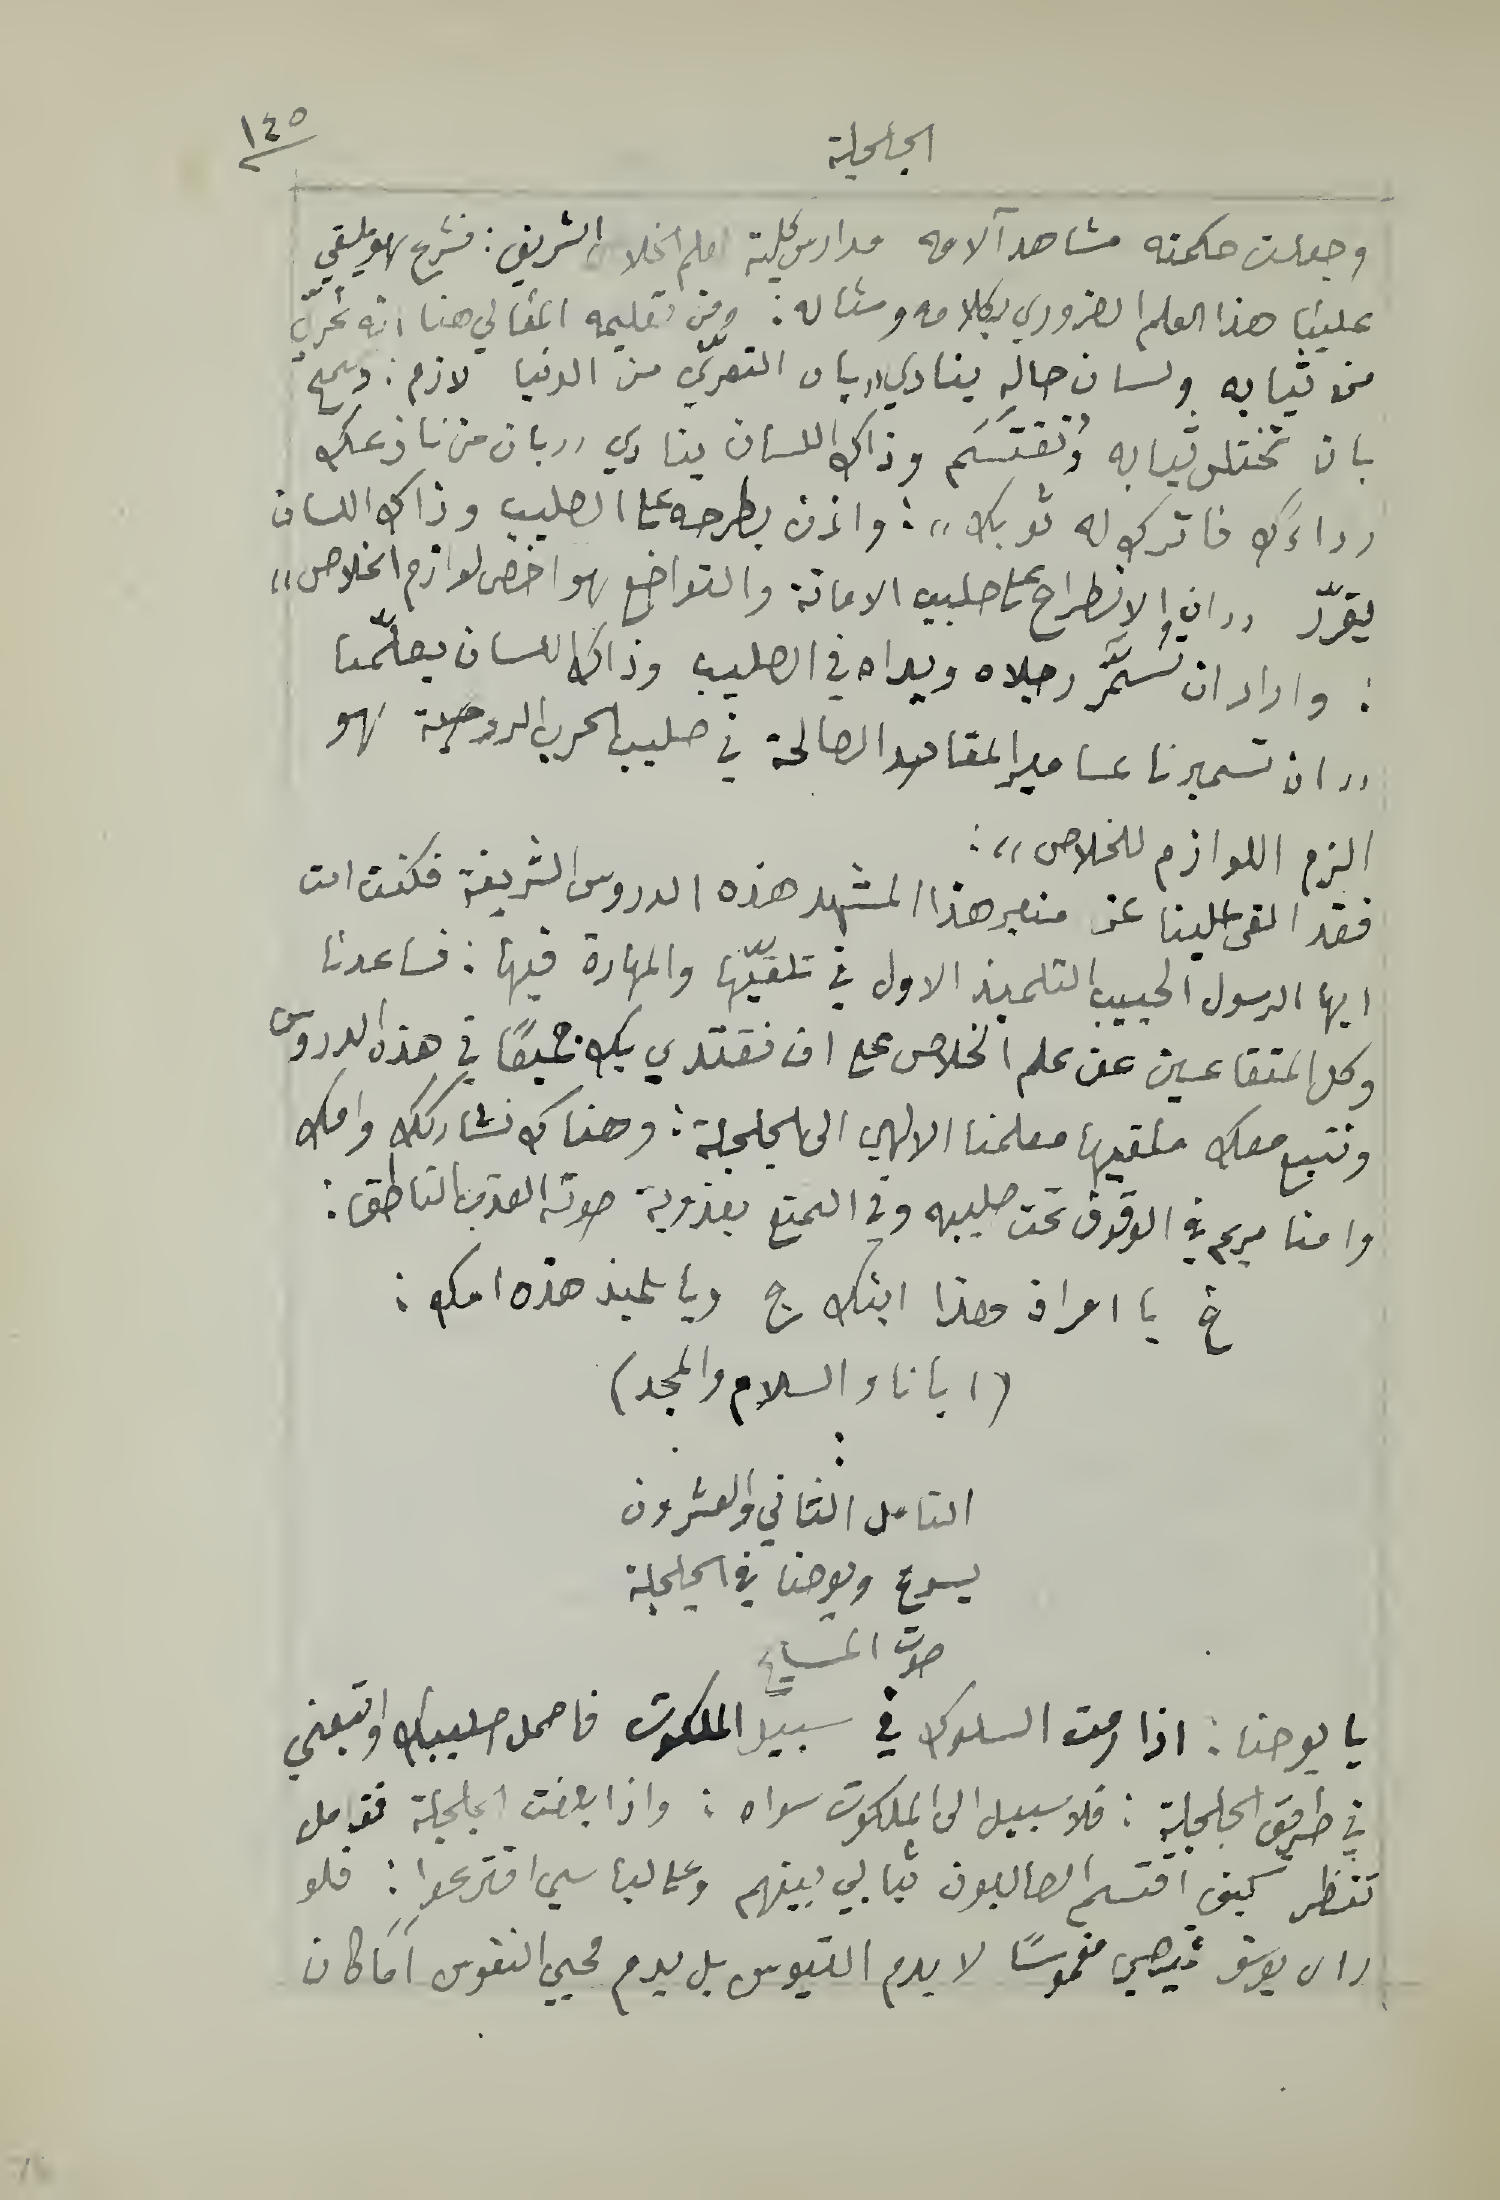 ١٤٥
الجلجلة
وجعلت حكمته مشاهد آلامه مدارس كلية لعلم الخلاص الشريف : فشرع هو يلقي
علينا هذا العلم الضروري بكلامه ومثاله : ومن تعليمه المثالي هنا انه تعرّى
من ثيابه ولسان حاله ينادي ,, بان التعرّي من الدنيا لازم : وسمح
بان تختلس ثيابه وتُقتسَم وذاك اللسان ينادي ,, بان من نازعك
رداءَك فاترك له ثوبك ,, : واذن بطرحه على الصليب وذاك اللسان
يقرّر ,, ان الانطراح على صليب الاماتة والتواضع هو اخص لوازم الخلاص ,,
: واراد ان تُسمَّر رجلاه ويداه في الصليب وذاك اللسان يعلّمنا
,, ان تسميرنا بمسامير المقاصد الصالحة في صليب الحرب الروحية هو
الزم اللوازم للخلاص ,, :
فقد القى علينا عن منبر هذا المشهد هذه الدروس الشريفة فكنت انت
ايها الرسول الحبيب التلميذ الاول في تلقيّها والمهارة فيها : فساعدنا
وكل المتقاعسين عن علم الخلاص على ان نقتدي بك جميعًا في هذه الدروس
ونتبع معك ملقيها معلمنا الالهي الى الجلجلة : وهناك نشاركك وامك
وامنا مريم في الوقوف تحت صليبه وفي التمتع بعذوبة صوته العذب الناطق :
خ يا امراة هوذا ابنك ج ويا تلميذ هذه امك :
( ابانا و السلام والمجد )
التامل الثاني والعشرون
يسوع ويوحنا في الجلجلة
صوت المسيح
يا يوحنا : اذا رمت السلوك في سبيل الملكوت فاحمل صليبك واتبعني
في طريق الجلجلة : فلا سبيل الى الملكوت سواه : واذا بلغت الجلجلة فتامل
تنظر كيف اقتسم الصالبون ثيابي بينهم وعلى لباسي اقترعوا : فلو
راى يوسف قميصي مغموسًا لا بدم التيوس بل بدم محيي النفوس اَمَا كان